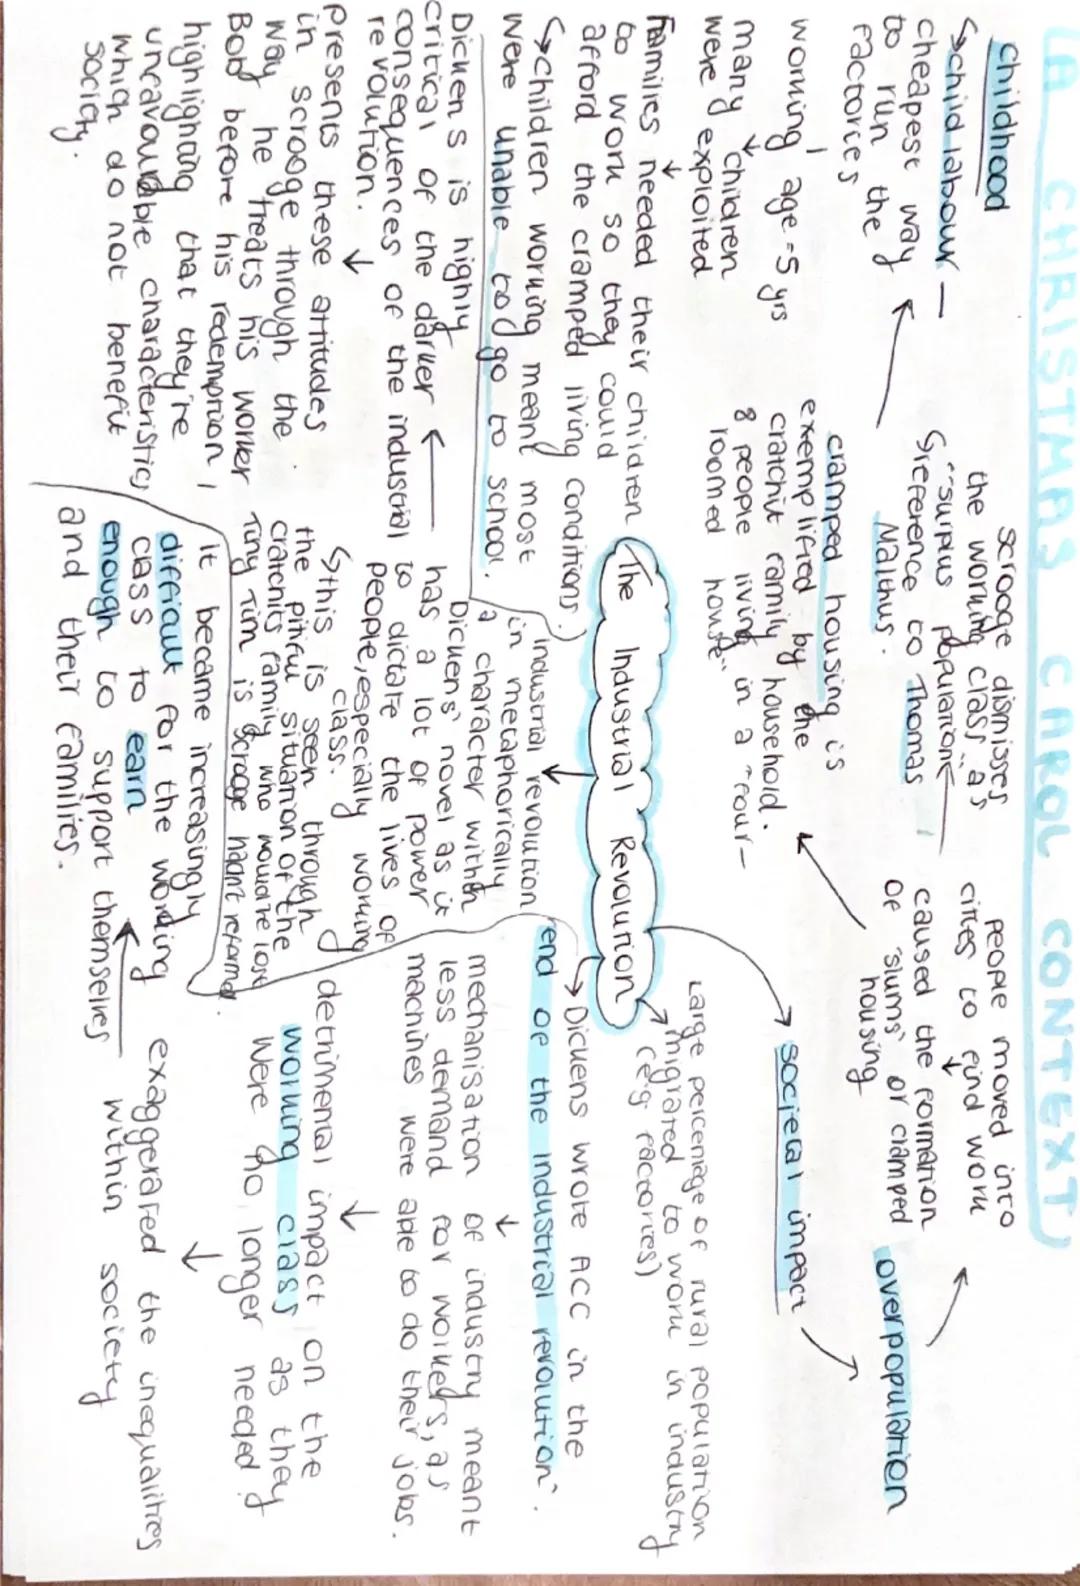 (A CHRISTMAS CAROL CONTEXT)
childhood
↳child labour –
cheapest way
to run the
factories
working age = 5 yrs
many children
were exploited
Families needed their children
to work so they could
afford the cramped living conditions.
↳children working meant most
were unable to go to school.
Scrooge dismisses
the working class as
"surplus population"
↳reference to Thomas
Malthus.
cramped housing is
exemplified by the
cratchit family household.
8 people living in a "four-
roomed house"
people moved into
cities to find work
caused the formation
of 'slums' or cramped
housing
overpopulation
societal impact
Large percentage of rural population
migrated to work in industry
(e.g. factories)
The Industrial Revolution
Dickens wrote ACC in the
'end of the industrial revolution'.
mechanisation of industry meant
less demand for workers, as
machines were able to do their jobs.
detrimental impact on the
working class as they
were no longer needed
exaggerated the inequalities
within society
it became increasingly
difficult for the working
class to earn
enough to support themselves
and their families.
industrial revolution
in metaphorically
a character within
Dickens' novel as it
has a lot of power
to dictate the lives of
people, especially working
class.
↳this is seen through
the pitiful situation of the
cratchits family who would've lost
Tiny Tim is scrooge hadn't reformed.
Dickens is highly
critical of the darker
consequences of the industrial
revolution.
presents these attitudes
in scrooge through the
way he treats his worker
Bob before his redemption,
highlighting that they're
unfavourable characteristics
which do not benefit
society.